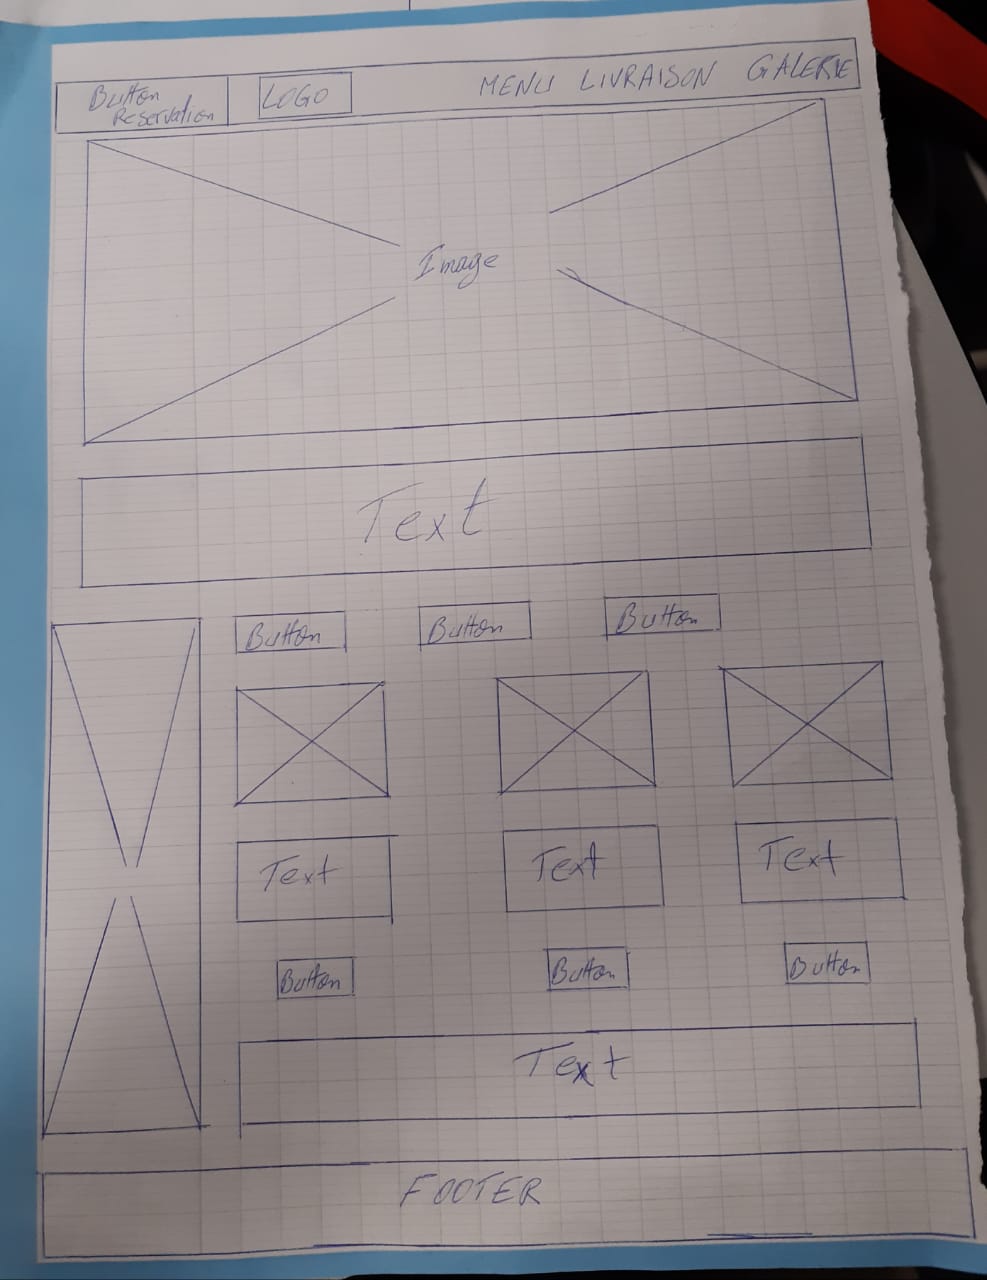 Button
Reservation
LOGO
MENU LIVRAISON GALERIE
Image
Text
Button Button Button
Text Text Text
Button Button Button
Text
FOOTER